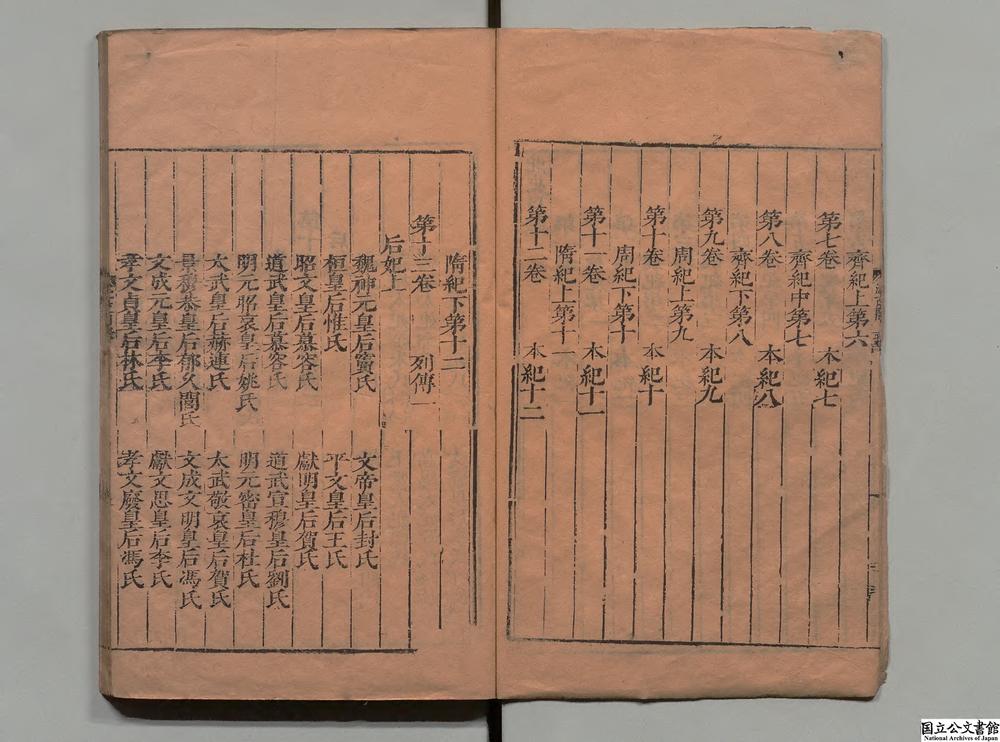 齊紀上第六
第七卷 本紀七
齊紀中第七
第八卷 本紀八
齊紀下第八
第九卷 本紀九
周紀上第九
第十卷 本紀十
周紀下第十
第十一卷 本紀十一
隋紀上第十一
第十二卷 本紀十二
隋紀下第十二
第十三卷 列傳一
后妃上
魏神元皇后竇氏 文帝皇后封氏
桓皇后惟氏 平文皇后王氏
昭文皇后慕容氏 獻明皇后賀氏
道武皇后慕容氏 道武宣穆皇后劉氏
明元昭哀皇后姚氏 明元密皇后杜氏
太武皇后赫連氏 太武敬哀皇后賀氏
景穆恭皇后郁久閭氏 文成文明皇后馮氏
文成元皇后李氏 獻文思皇后李氏
孝文貞皇后林氏 孝文廢皇后馮氏
国立公文書館
National Archives of Japan